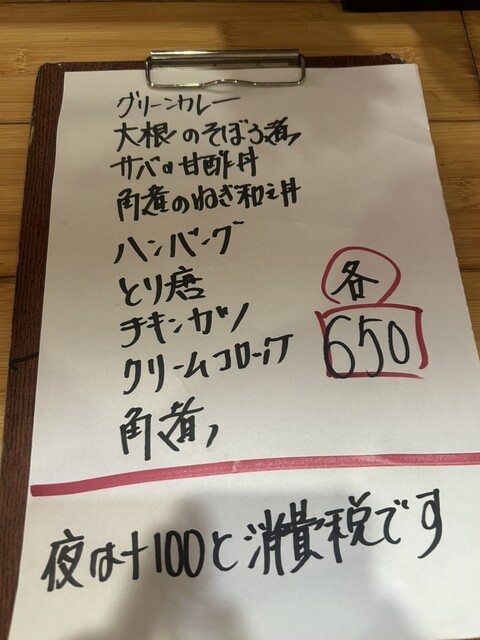 グリーンカレー
大根のそぼろ煮
サバの甘酢丼
角煮のねぎ和え丼
ハンバーグ
とり唐
チキンカツ
クリームコロッケ
角煮
各
650
夜は+100と消費税です